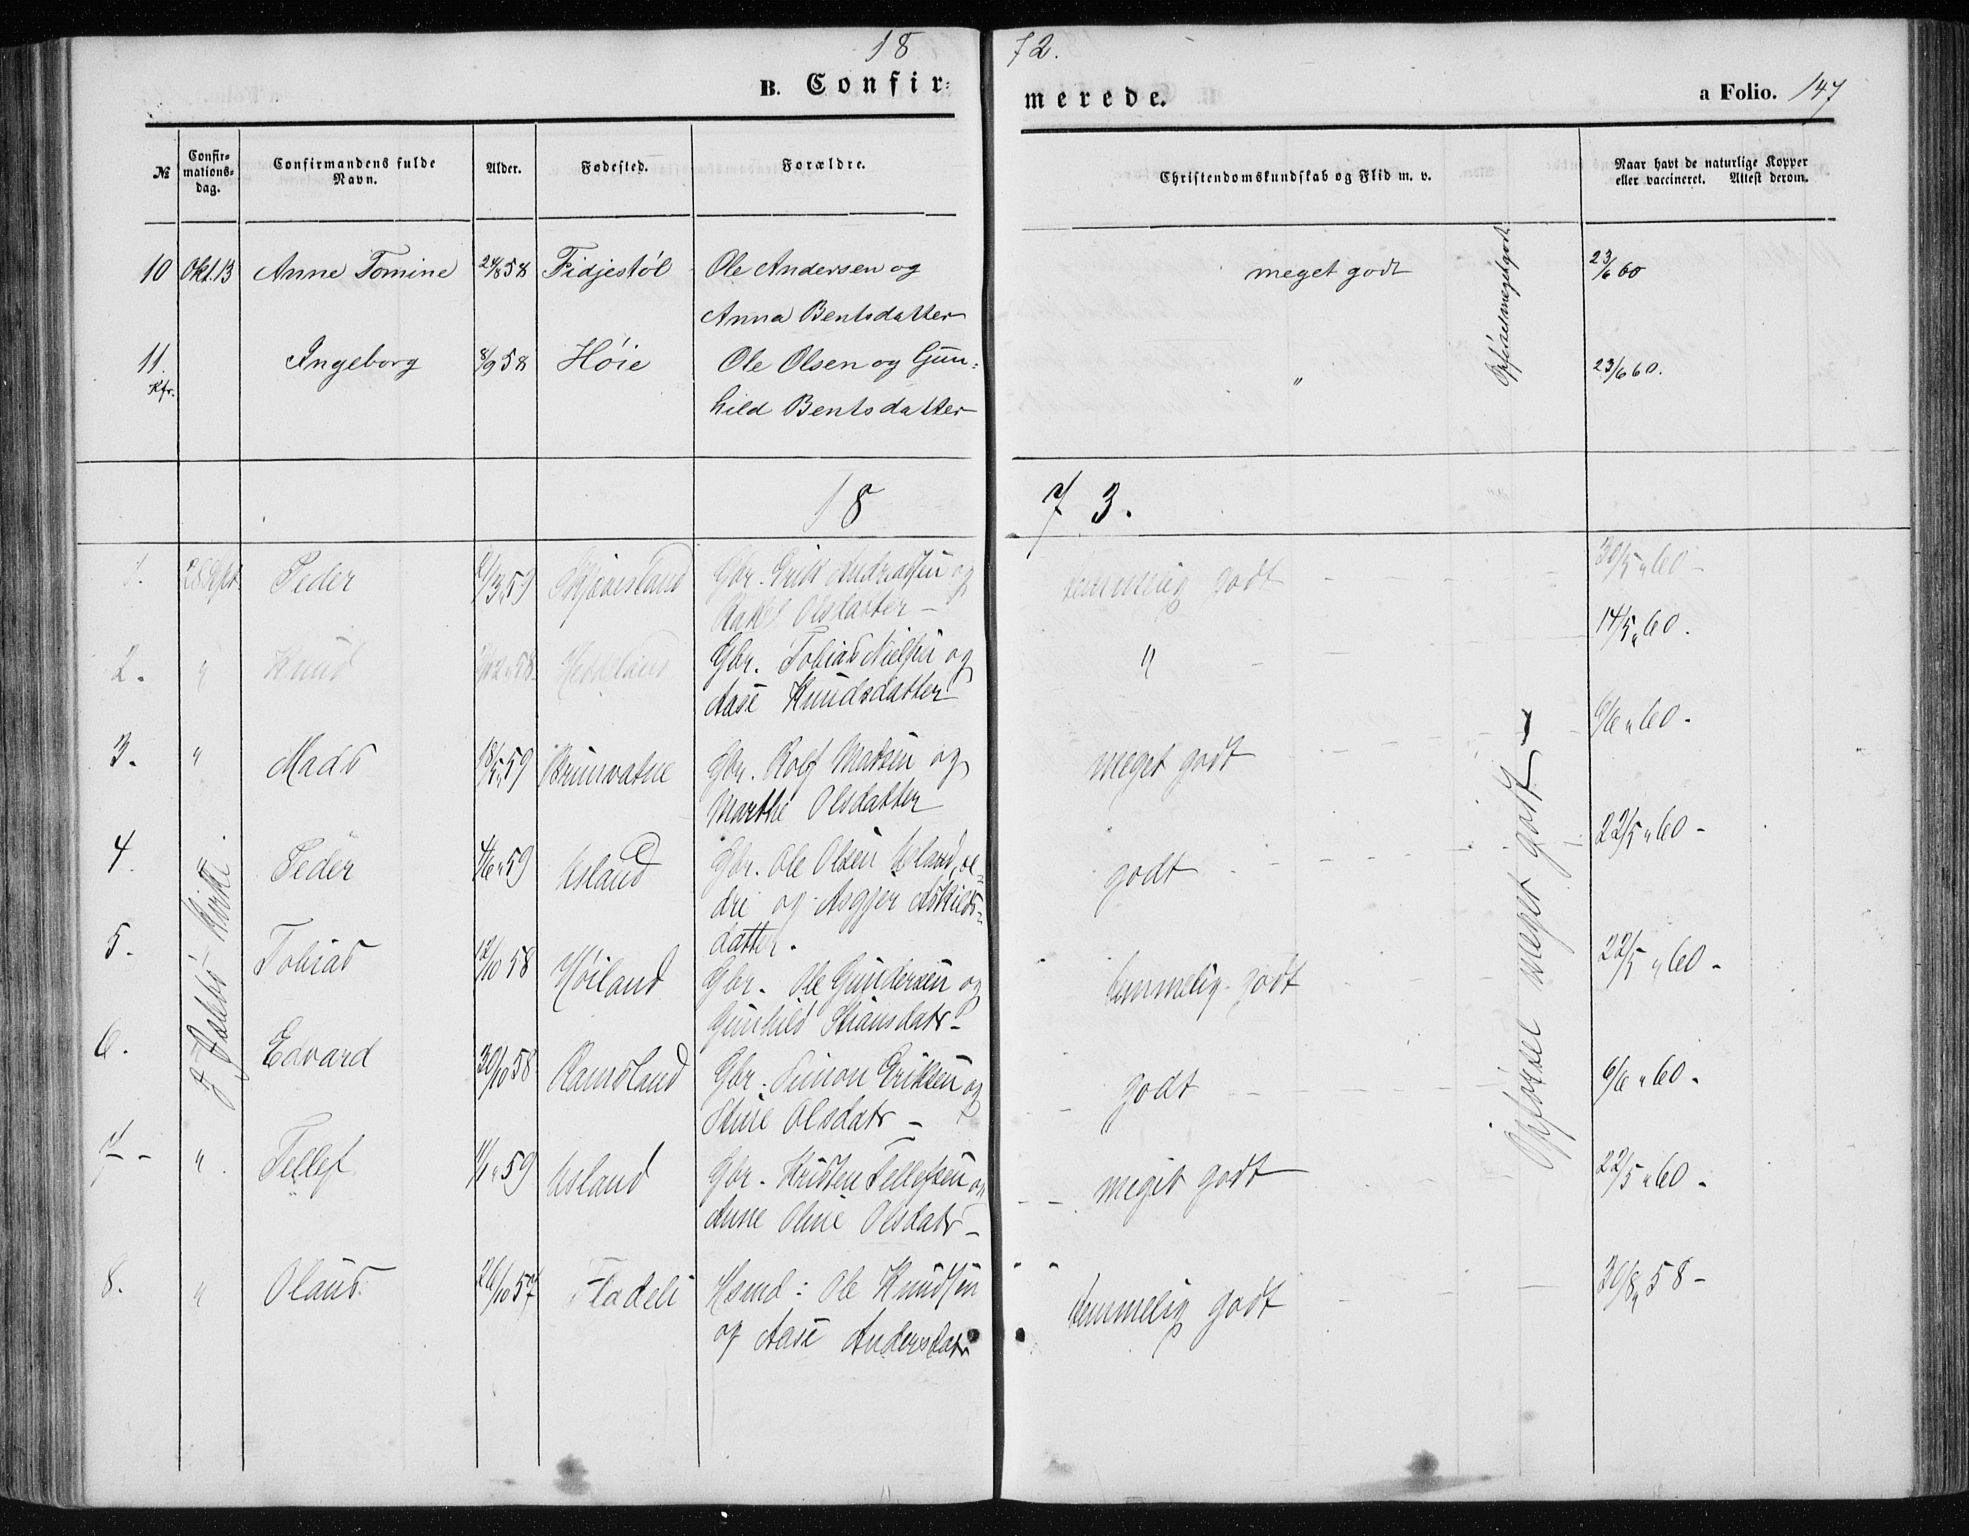 18 72.
B. Confirmerede. a Folio. 147
№ Confirmationsdag. Confirmandens fulde Navn. Alder. Fødested. Forældre. Christendomskundskab og Flid m. v. Naar havt de naturlige Kopper eller vaccineret. Attest derom.
10 Okt. 13 Anne Tomine 24/8 58 Fidjestøl Ole Andersen og meget godt 23/6 60
Anna Bentsdatter
11. Ingeborg 8/9 58 Høie Ole Olsen og Gun- " 23/6 60.
Kfr. hild Bentsdatter
Opførsel meget godt.
18 73.
1. 28 Sept Peder 3 59 Gbr. Erik Andreassen og temmelig godt 30/5 60
Rakel Olsdatter
2. " Knud Gbr. Tobias Nielsen og " 14/5 60.
Aase Knudsdatter
3. " Mads 18/5 59 Brunvatne Gbr. Rolf Madsen og meget godt 6/6 " 60.
Marthe Olsdatter
4. Peder 4/6 " 59 Usland Gbr. Ole Olsen Usland, æl- godt 22/5 " 60
dre og Asgjer Askilds-
datter.
5. Tobias 12/10 58 Høiland Gbr. Ole Gundersen og temmelig godt 22/5 " 60
Gunhild Stiansdatr
6. Edvard 30/10 58 Ramsland Gbr. Simon Eriksen og godt 6/6 " 60.
Stine Olsdatr
7 " Tellef 11/1 " 59 Usland Gbr. Kristen Tellefsen og meget godt 22/5 " 60
Anne Oline Olsdatr
8. " Olaus 26/10 57 Fladeli Hsmd: Ole Knudsen temmelig godt 30/8 " 58
og Aase Andersdatr
Kirke
Opførsel meget godt